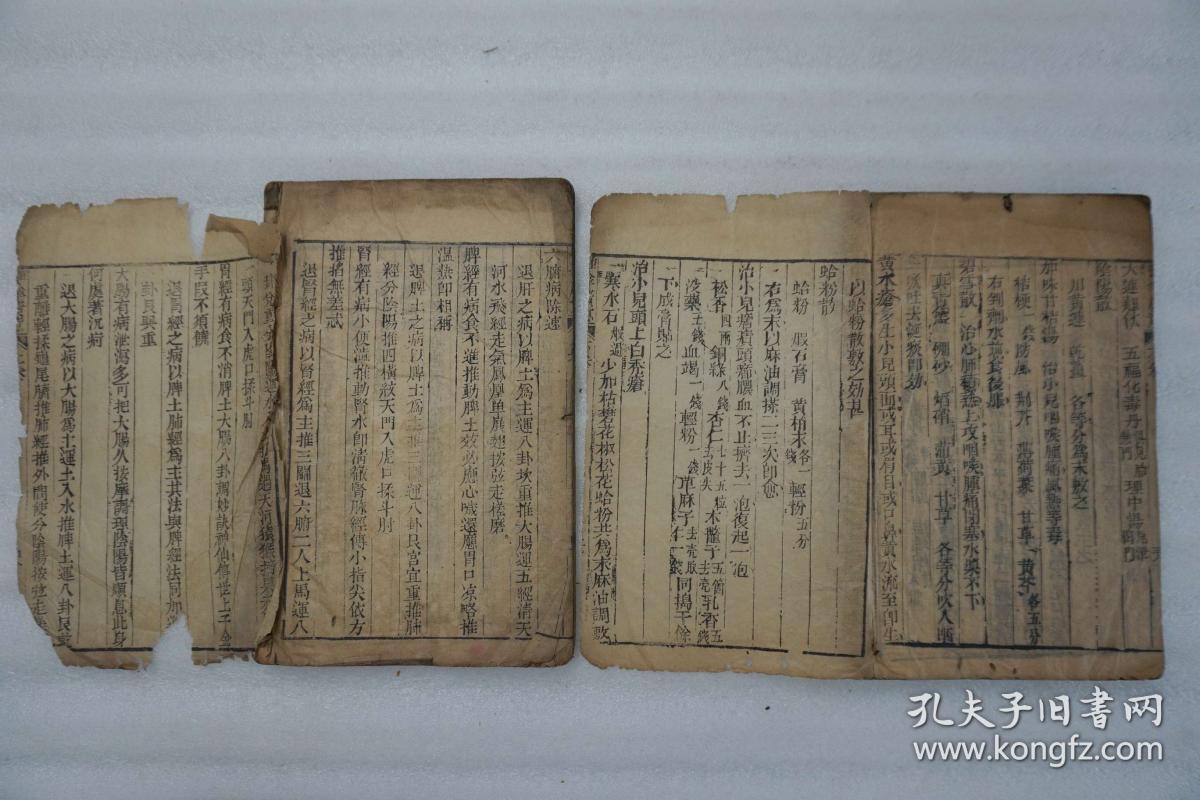 大連翹飲 五福化毒丹 理中
陰陽散
川黃連 乾薑 各等分爲末敷之
加味甘桔湯 治小兒咽喉腫痛風熱等毒
桔梗 防風 荊芥 薄荷 甘草 黃芩 各五分
右剉水煎食後服
碧雪散 治心肺積熱上攻咽喉腫痛閉塞水漿不下
真青黛 硼砂 焰硝 蒲黃 甘草 各等分吹入咽
黃水瘡多生小兒頭面或耳或眉目或口角黃水流至即生
以蛤粉散敷之効甚
蛤粉散
蛤粉 煆石膏 黃柏末各一錢 輕粉五分
右爲末以麻油調搽二三次卽愈
治小兒瘡癀頭瘡膿血不止擠去一泡復起一泡
松香四兩 銅綠八錢 杏仁七十五粒去皮尖 木鱉子五箇去殼 乳香五錢
沒藥五錢 血竭一錢 輕粉一錢 草麻子 去殼 同搗千餘
下成膏貼之
治小兒頭上白禿瘡
寒水石煆過 少加枯礬花椒松花蛤粉共爲末麻油調敷
六腑病除速
退肝之病以脾土爲主運八卦坎重推大腸運五經清天
河水飛經走氣鳳凰單展翅按弦走搓磨
脾經有病食不進推動脾土效必應心哕還應胃口凉略推
溫熱卽相稱
退脾土之病以脾土爲主推三關運八卦艮宮宜重推肺
經分陰陽推四橫紋天門入虎口揉斗肘
腎經有病小便澁推動腎水卽清徹腎脉經傳小指尖依方
推掐無差忒
退腎經之病以腎經爲主推三關退六腑二人上馬運八
頭天門入虎口揉斗肘
胃經有病食不消脾土大腸八卦調妙訣神仙傳世上千金
手叚不須饒
退胃經之病以脾土肺經爲主其法與脾經法同加運
卦艮巽重
大腸有病泄瀉多可把大腸久按摩調理陰陽皆順息此身
何處著沉疴
退大腸之病以大腸爲主運土入水推脾土運八卦艮
重離輕揉𪖌尾臍推肺經推外間使分陰陽按弦走
孔夫子旧书网
www.kongfz.com